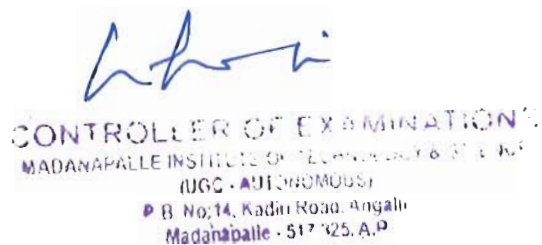 CONTROLLER OF EXAMINATIONS
MADANAPALLE INSTITUTE OF TECHNOLOGY &
(UGC - AUTONOMOUS)
P. B. No: 14, Kadiri Road, Angallu
Madanapalle - 517 325, A.P